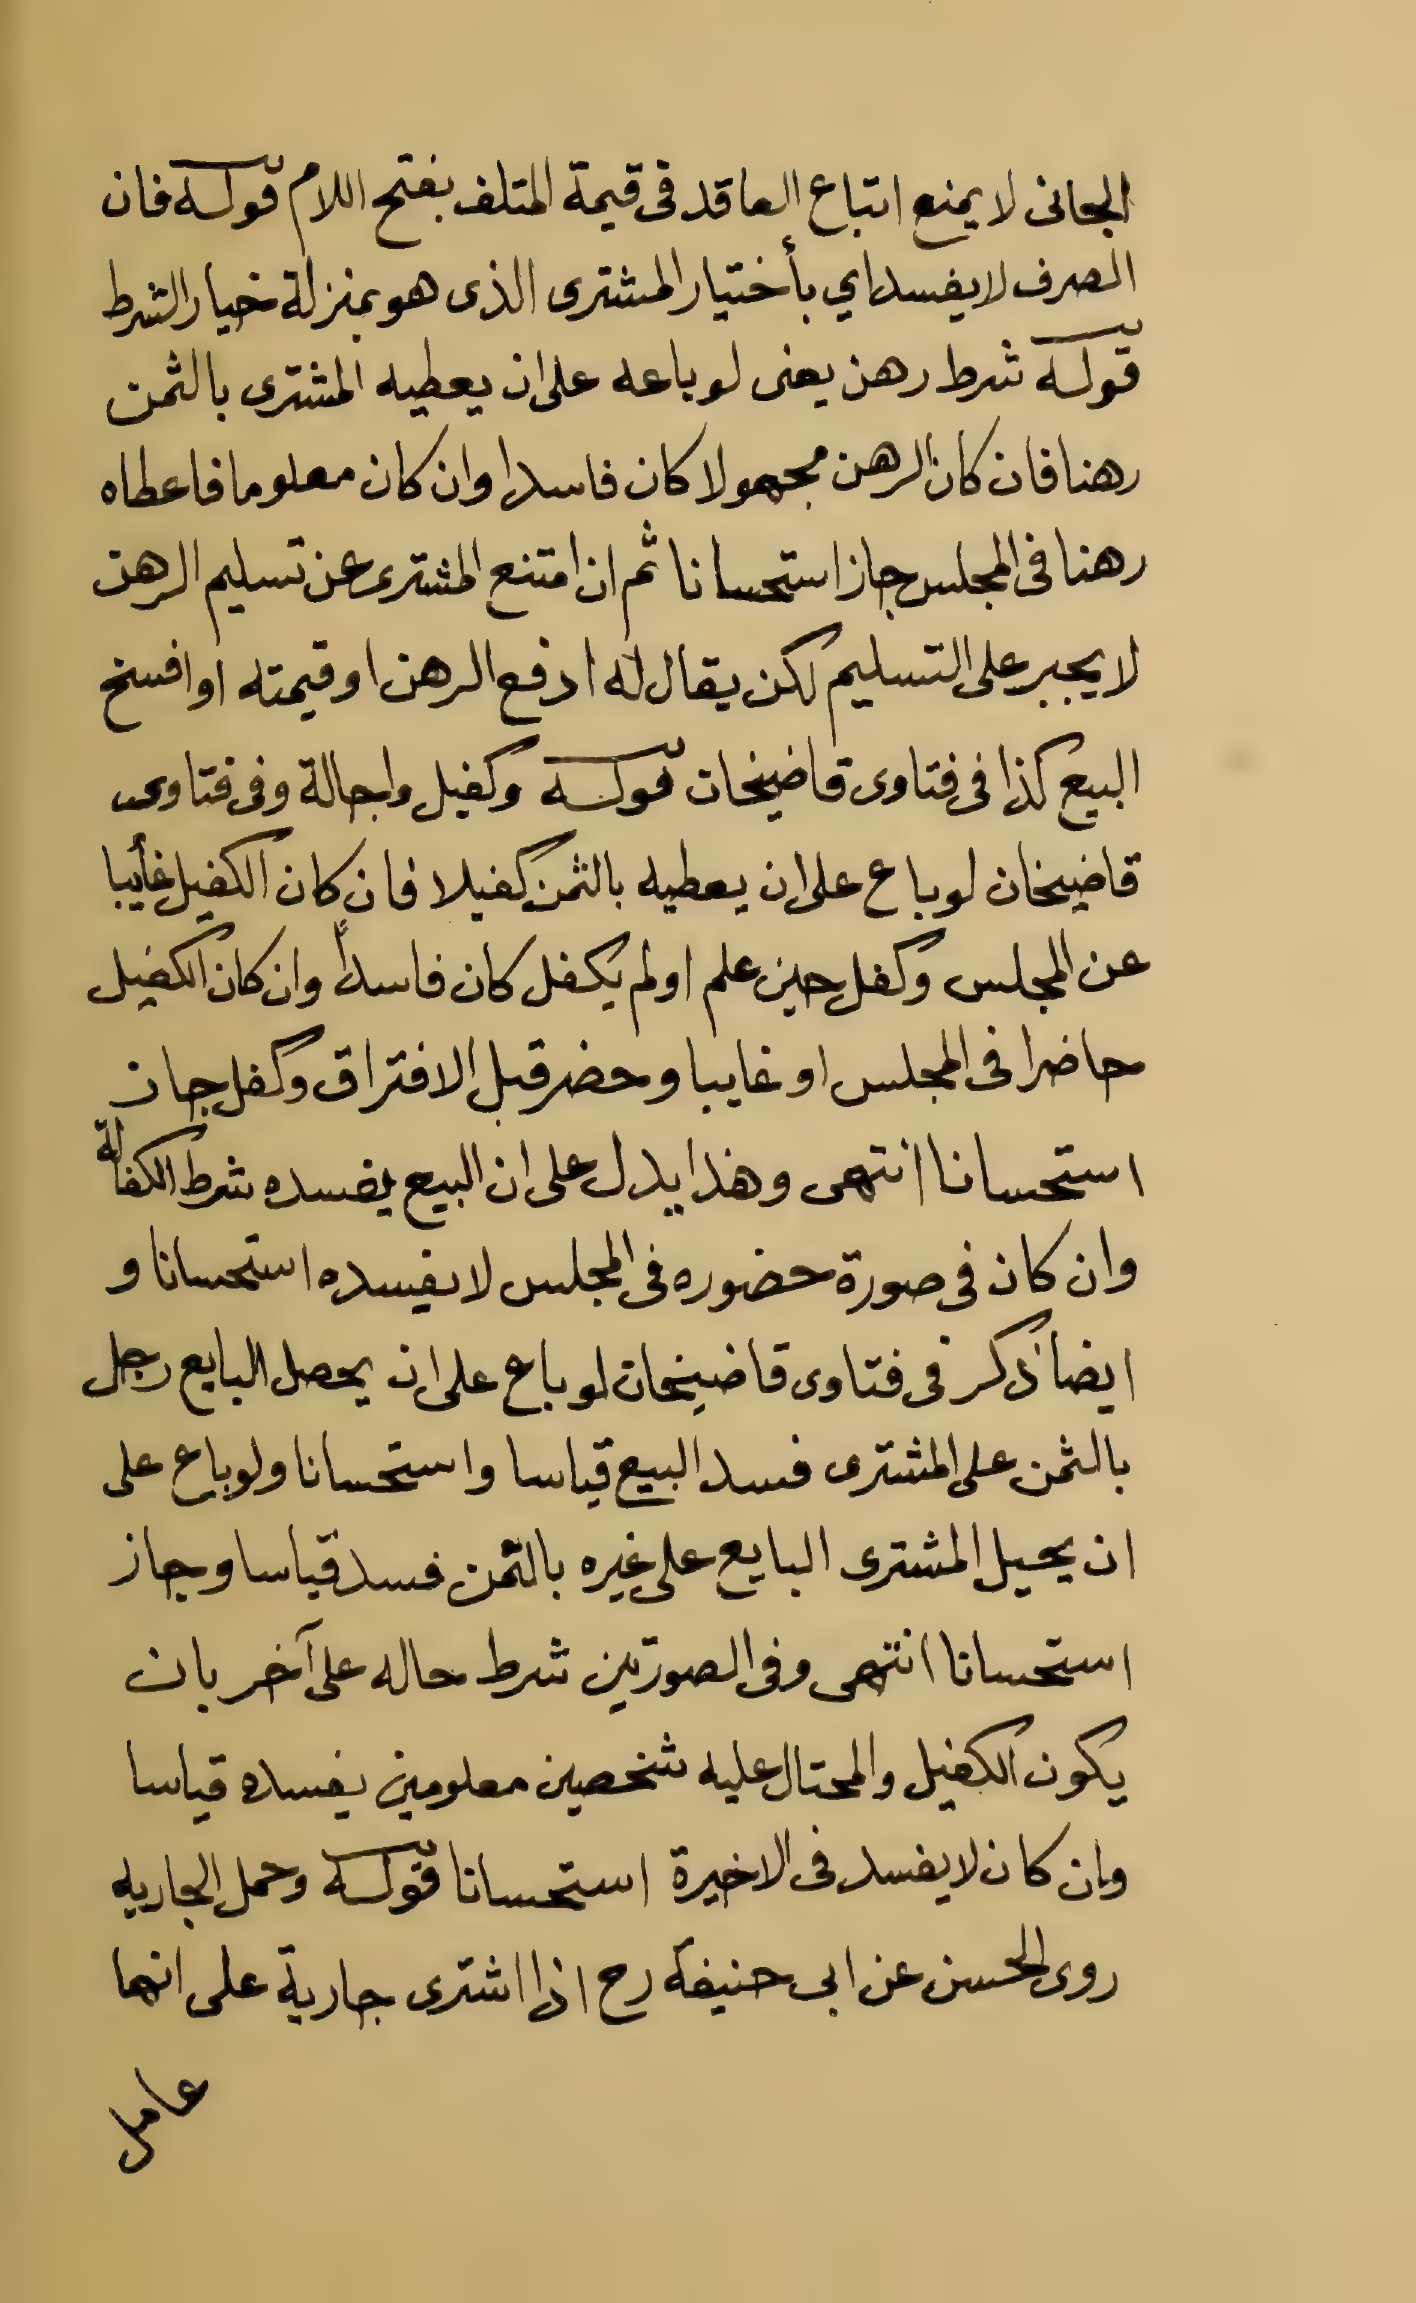 الجانى لا يمنع اتباع العاقد فى قيمة المتلف بفتح اللام قوله فان
الصرف لا يفسد اي بأختيار المشترى الذى هو بمنزلة خيار الشرط
قوله شرط رهن يعنى لو باعه على ان يعطيه المشترى بالثمن
رهنا فان كان الرهن مجهولا كان فاسدا وان كان معلوما فاعطاه
رهنا فى المجلس جاز استحسانا ثم ان امتنع المشترى عن تسليم الرهن
لا يجبر على التسليم لكن يقال له ادفع الرهن او قيمته او افسخ
البيع كذا فى فتاوى قاضيخان قوله وكفيل واحالة وفى فتاوى
قاضيخان لو باع على ان يعطيه بالثمن كفيلا فان كان الكفيل غأيبا
عن المجلس وكفل حين علم او لم يكفل كان فاسداً وان كان الكفيل
حاضرا فى المجلس او غايبا وحضر قبل الافتراق وكفل جاز
استحسانا انتهى وهذا يدل على ان البيع يفسده شرط الكفالة
وان كان فى صورة حضوره فى المجلس لا يفسده استحسانا و
ايضا ذكر فى فتاوى قاضيخان لو باع على ان يحصل البايع رجل
بالثمن على المشترى فسد البيع قياسا واستحسانا ولو باع على
ان يحيل المشترى البايع على غيره بالثمن فسد قياسا وجاز
استحسانا انتهى وفى الصورتين شرط حاله على آخر بان
يكون الكفيل والمحتال عليه شخصين معلومين يفسده قياسا
وان كان لا يفسد فى الاخيرة استحسانا قوله وحمل الجاريه
روى الحسن عن ابى حنيفة رح اذا اشترى جارية على انها
عامل